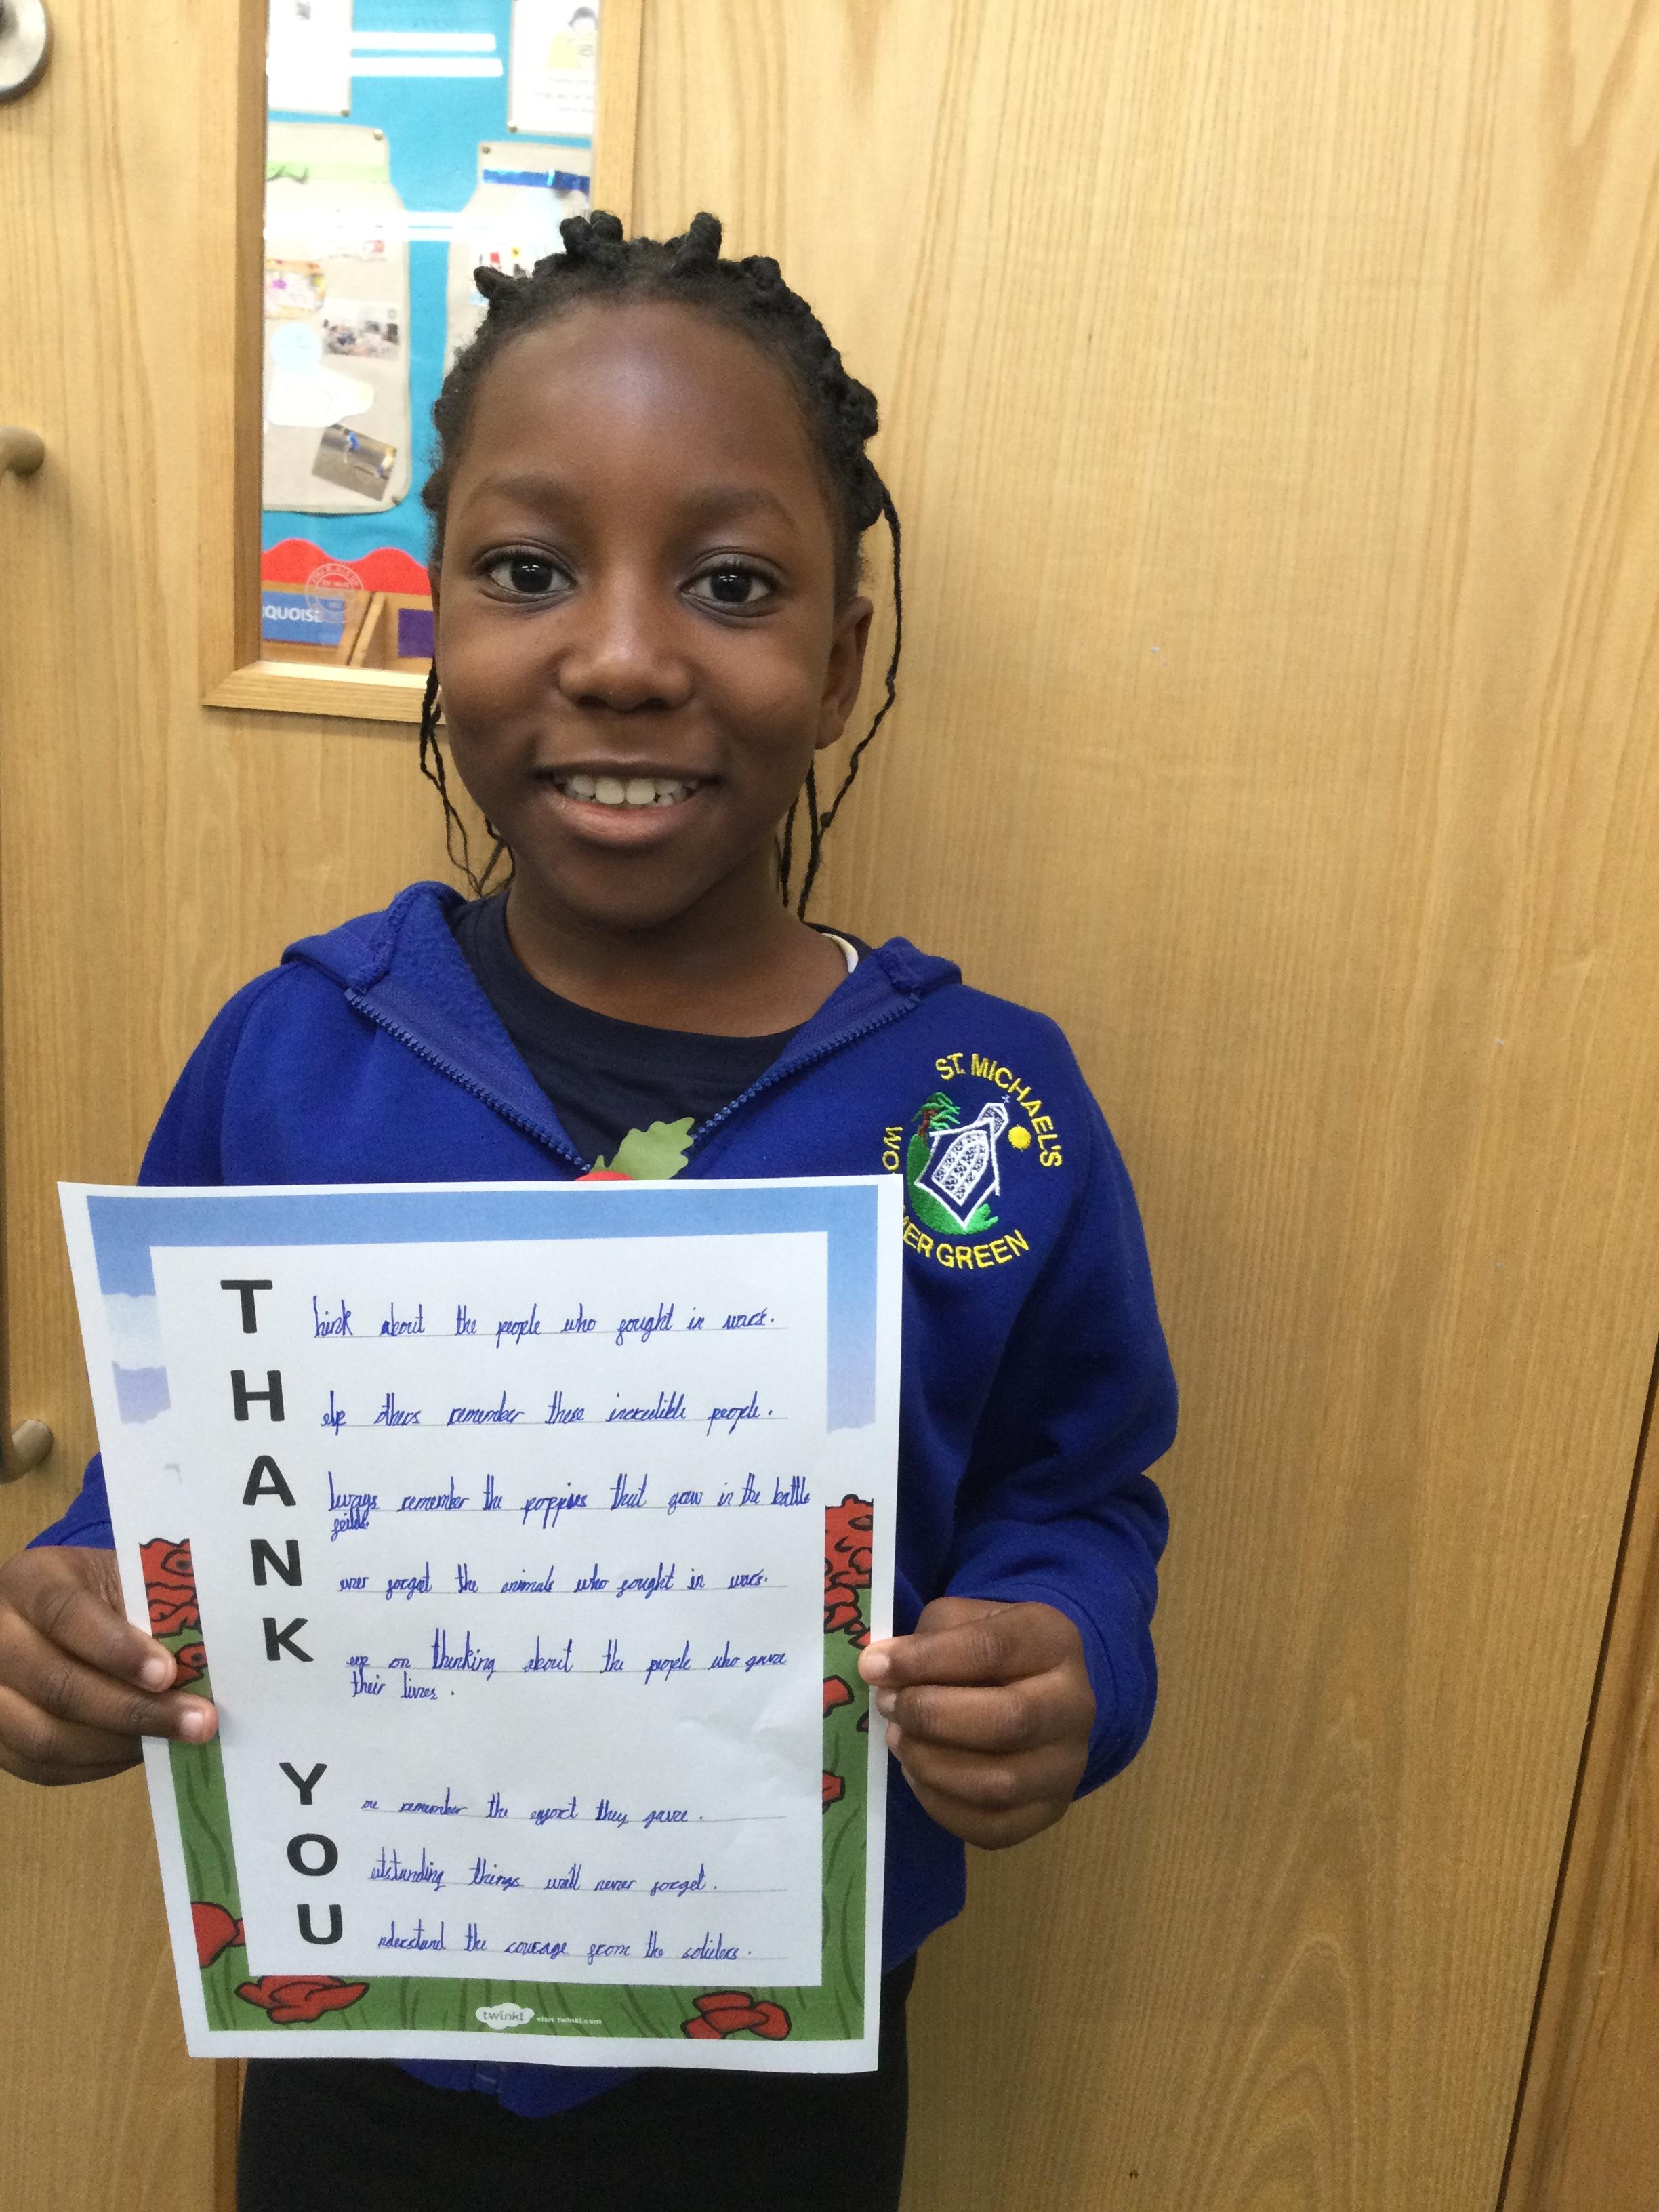 QUOISE
ST. MICHAEL'S
WO MER GREEN
Think about the people who fought in wars.
Help others remember these incredible people.
Always remember the poppies that grow in the battle
feilds.
Never forget the animals who fought in wars.
Keep on thinking about the people who gave
their lives.
You remember the effort they gave.
Outstanding things will never forget.
Understand the courage from the soliders.
twinkl visit twinkl.com